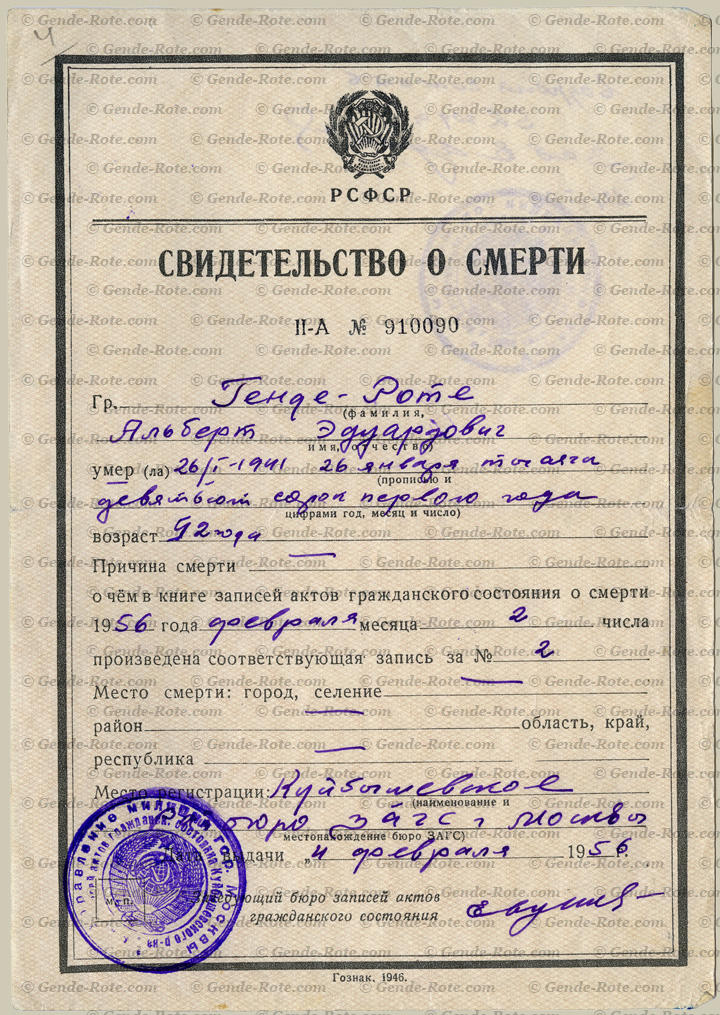 Ч
РСФСР
СВИДЕТЕЛЬСТВО О СМЕРТИ
II-А № 910090
Гр. Генде-Роте
(фамилия,
Альберт Эдуардович
имя, отчество)
умер (ла) 26/I-1941 26 января тысяча
(прописью и
девятьсот сорок первого года
цифрами год, месяц и число)
возраст 92 года
Причина смерти —
о чём в книге записей актов гражданского состояния о смерти
1956 года февраля месяца 2 числа
произведена соответствующая запись за № 2
Место смерти: город, селение —
район — область, край,
республика —
Место регистрации: Куйбышевское
(наименование и
бюро ЗАГС г Москвы
местонахождение бюро ЗАГС)
Дата выдачи „4 февраля 1956 г.
Заведующий бюро записей актов
гражданского состояния
м. п.
Гознак. 1946.
© Gende-Rote.com